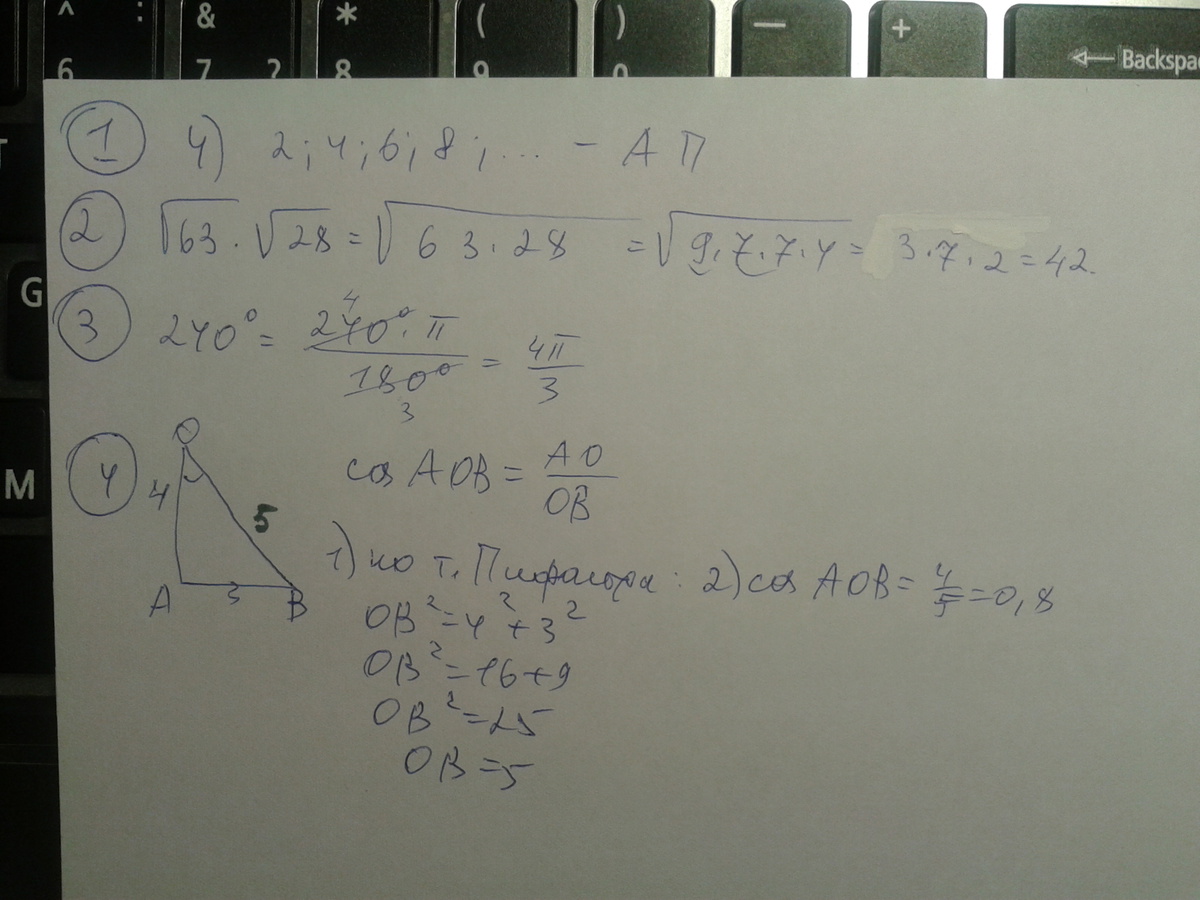 ^ : & * ( ) — +
6 7 ? 8 9 0 Backspa
G
M
1 4) 2; 4; 6; 8; ... – АП
2 √63 · √28 = √63·28 = √9·7·7·4 = 3·7·2 = 42.
3 240° = 240°·π / 180° = 4π/3
4
3
4 O cos AOB = AO/OB
4 5
A 3 B
1) по т. Пифагора: 2) cos AOB = 4/5 = 0,8
OB² = 4² + 3²
OB² = 16 + 9
OB² = 25
OB = 5